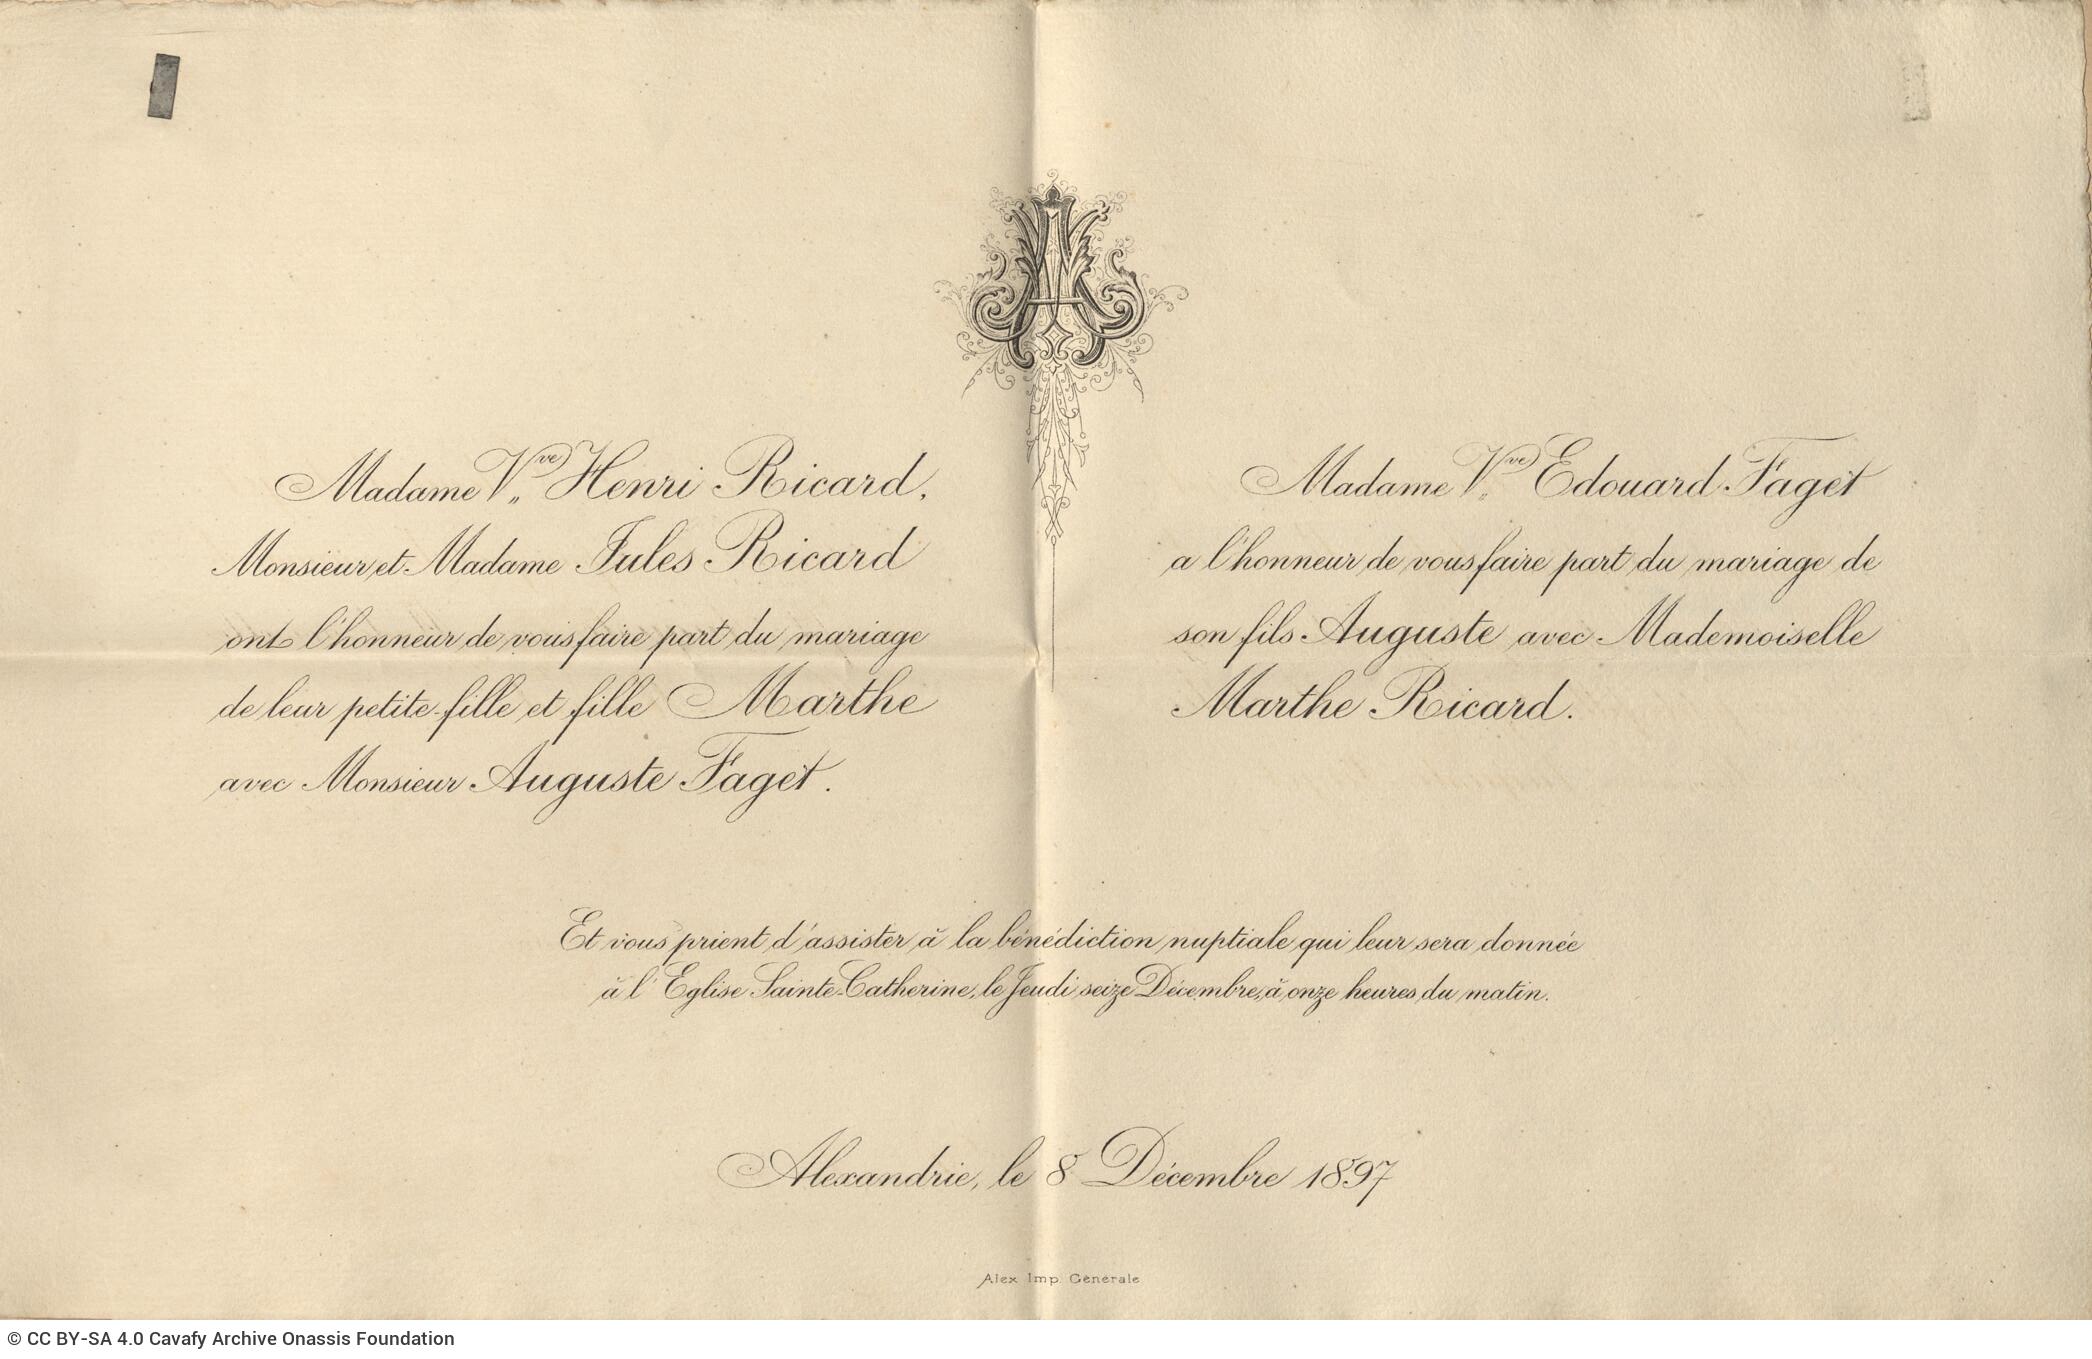 AM
Madame Vve Henri Ricard,
Monsieur et Madame Jules Ricard
ont l'honneur de vous faire part du mariage
de leur petite-fille et fille Marthe
avec Monsieur Auguste Faget.
Madame Vve Edouard Faget
a l'honneur de vous faire part du mariage de
son fils Auguste avec Mademoiselle
Marthe Ricard.
Et vous prient d'assister à la bénédiction nuptiale qui leur sera donnée
à l'Eglise Sainte-Catherine, le Jeudi seize Décembre, à onze heures du matin.
Alexandrie, le 8 Décembre 1897
Alex Imp. Générale
© CC BY-SA 4.0 Cavafy Archive Onassis Foundation